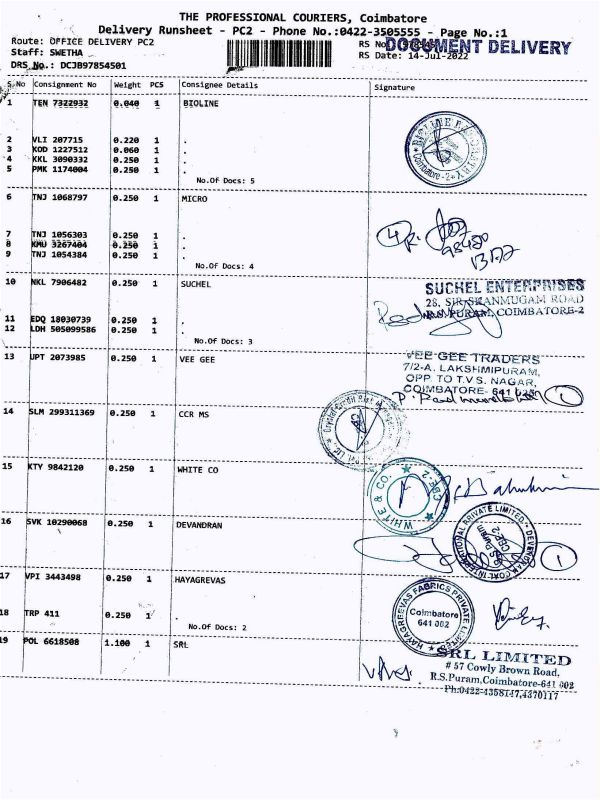 THE PROFESSIONAL COURIERS, Coimbatore
Delivery Runsheet - PC2 - Phone No.:0422-3505555 - Page No.:1
Route: OFFICE DELIVERY PC2
RS No
DOCUMENT DELIVERY
Staff: SWETHA
RS Date: 14-Jul-2022
DRS No.: DCJB97854501
S.No Consignment No Weight PCS Consignee Details Signature
1 TEN 7322932 0.040 1 BIOLINE
2 VLI 207715 0.220 1 .
3 KOD 1227512 0.060 1 .
4 KKL 3090332 0.250 1 .
5 PMK 1174004 0.250 1 .
No.Of Docs: 5
Coimbatore-2
6 TNJ 1068797 0.250 1 MICRO
7 TNJ 1056303 0.250 1 .
8 KMU 3267404 0.250 1 .
9 TNJ 1054384 0.250 1 .
No.Of Docs: 4
10 NKL 7906482 0.250 1 SUCHEL
SUCHEL ENTERPRISES
28, SIR SHANMUGAM ROAD
R.S. PURAM, COIMBATORE-2
11 EDQ 18030739 0.250 1 .
12 LDH 505099586 0.250 1 .
No.Of Docs: 3
13 UPT 2073985 0.250 1 VEE GEE
VEE GEE TRADERS
7/2-A. LAKSHMIPURAM,
OPP. TO T.V.S. NAGAR,
COIMBATORE- 641
1
14 SLM 299311369 0.250 1 CCR MS
15 KTY 9842120 0.250 1 WHITE CO
WHITE & CO. CBE-2
16 SVK 10290068 0.250 1 DEVANDRAN
1
17 VPI 3443498 0.250 1 HAYAGREVAS
HAYAGREEVAS FABRICS PRIVATE LIMITED
Coimbatore
641 002
18 TRP 411 0.250 1 .
No.Of Docs: 2
19 POL 6618508 1.100 1 SRL
SRL LIMITED
# 57 Cowly Brown Road,
R.S.Puram,Coimbatore-641 002
Ph:0422-4358147,4370117